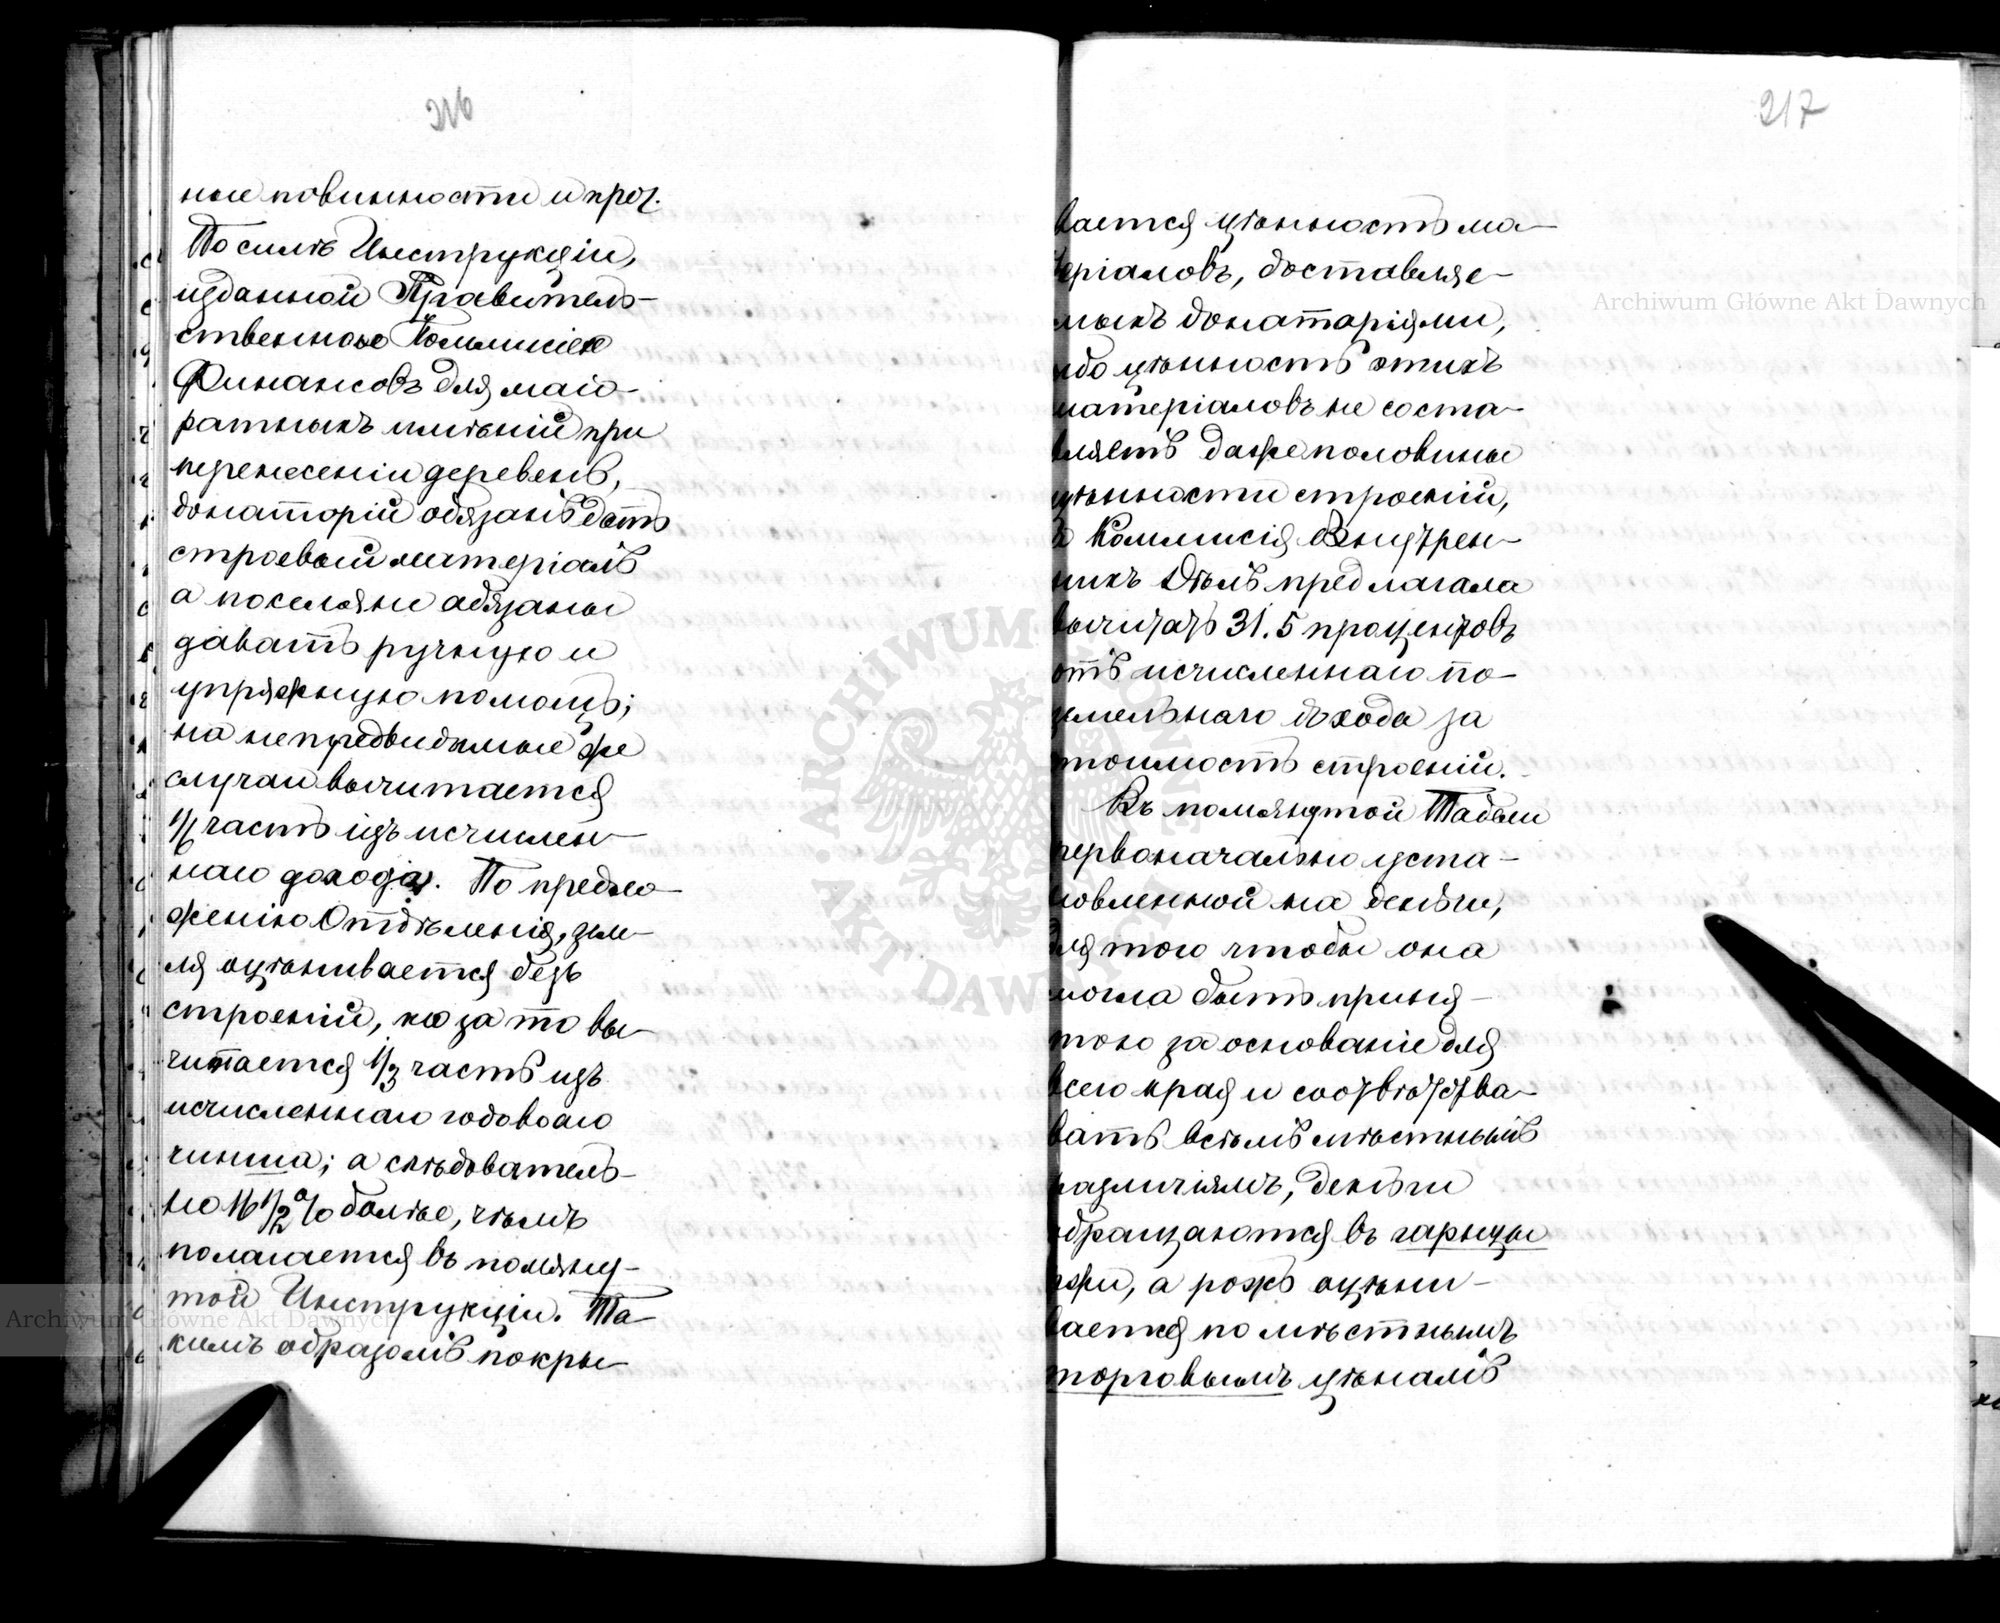 216
ные повинности и проч.
По силѣ Инструкціи,
изданной Правитель-
ственною Коммисіею
Финансовъ для маіо-
ратныхъ имѣній при
перенесеніи деревень,
донаторій обязанъ дать
строевый матеріалъ
а поселяне обязаны
давать ручную и
упряжную помощь;
на непредвидимые же
случаи вычитается
1/6 часть изъ исчислен-
наго дохода. По предло-
женію Отдѣленія, зем-
ля оцѣнивается безъ
строеній, но за то вы-
читается 1/3 часть изъ
исчисленнаго годоваго
чинша; а слѣдователь-
но 16 1/2 % болѣе, чѣмъ
полагается въ помяну-
той Инструкціи. Та-
кимъ образомъ покры-
217
вается цѣнность ма-
теріаловъ, доставляе-
мыхъ донатаріями,
ибо цѣнность этихъ
матеріаловъ не соста-
вляетъ даже половины
цѣнности строеній,
а Коммисія Внутрен-
нихъ Дѣлъ предлагала
вычитать 31.5 процентовъ
отъ исчисленнаго по-
земельнаго дохода за
стоимость строеній.
Въ помянутой Табели
первоначально уста-
новленной на деньги,
для того чтобы она
могла быть приня-
тою за основаніе для
всего края и соотвѣтство-
вать всѣмъ мѣстнымъ
различіямъ, деньги
обращаются въ гарнцы
ржи, а рожь оцѣни-
вается по мѣстнымъ
торговымъ цѣнамъ
Archiwum Główne Akt Dawnych
Archiwum Główne Akt Dawnych
ARCHIWUM GŁÓWNE AKT DAWNYCH